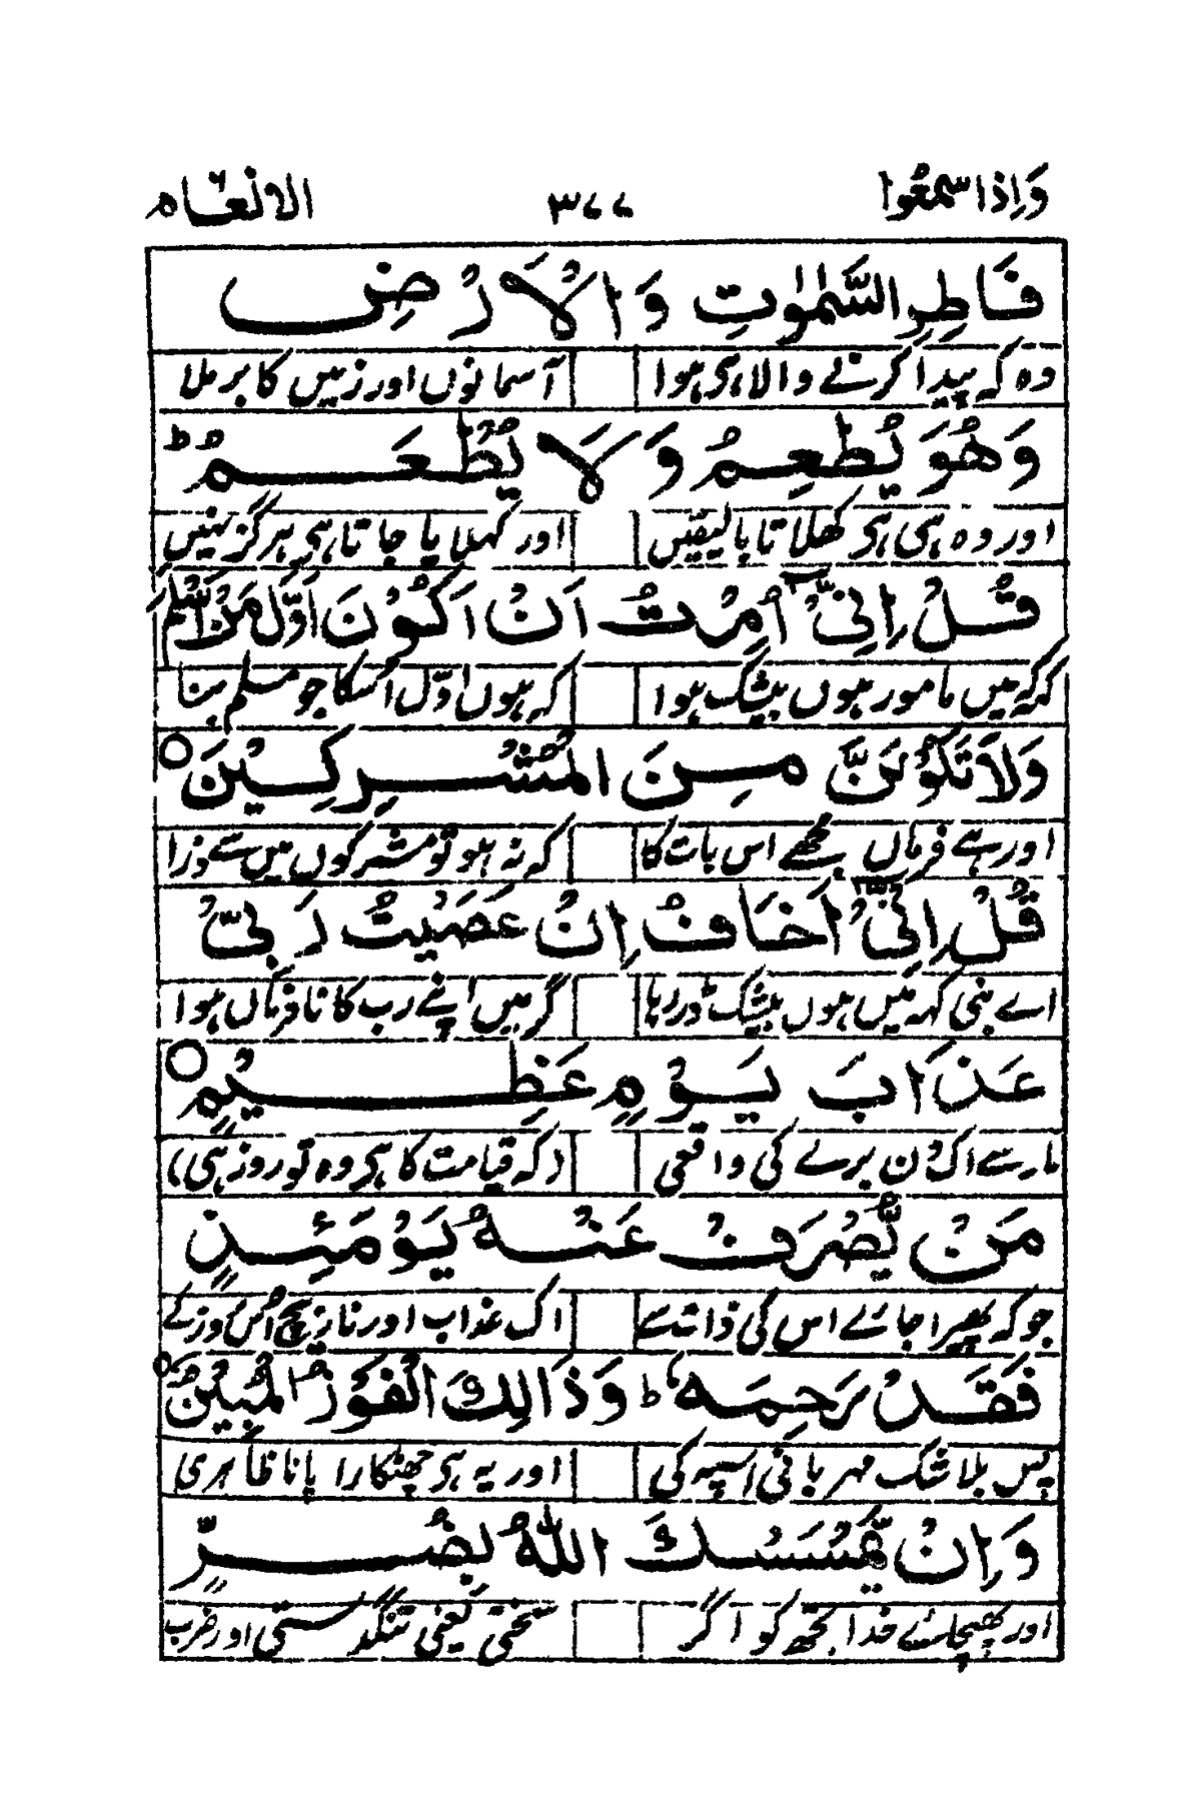 وَاِذَا سمعُوا ۳۷۷ الانعام
فَاطِرِ السَّمٰوٰتِ وَالْاَرْضِ
وہ کہ پیدا کرنے والا ہی ہوا آسمانوں اور زمیں کا برملا
وَهُوَ يُطْعِمُ وَلَا يُطْعَمُ ؕ
اور وہ ہی ہی کھلاتا بالیقیں اور کھلایا جاتا ہی ہرگز نہیں
قُلْ اِنِّيْۤ اُمِرْتُ اَنْ اَكُوْنَ اَوَّلَ مَنْ اَسْلَمَ
کہ کہ میں مامور ہوں بیشک ہوا کہ ہوں اوّل اُسکا جو مسلم بنا
وَلَا تَكُوْنَنَّ مِنَ الْمُشْرِكِيْنَ ○
اور ہے فرماں مجھے اس بات کا کہ نہ ہو تو مشرکوں میں سے ذرا
قُلْ اِنِّيْۤ اَخَافُ اِنْ عَصَيْتُ رَبِّيْ
اے نبی کہہ میں ہوں بیشک ڈر رہا گر میں اپنے رب کا نافرماں ہوا
عَذَابَ يَوْمٍ عَظِيْمٍ ○
مار سے اک دن بڑے کی واقعی (کہ قیامت کا ہی وہ تو روز ہی)
مَنْ يُّصْرَفْ عَنْهُ يَوْمَئِذٍ
جو کہ پھیرا جائے اس کی ذات سے اک عذاب اور نار بیچ اُس روز کے
فَقَدْ رَحِمَهٗ ؕ وَذَالِكَ الْفَوْزُ الْمُبِيْنُ ○
پس بلاشک مہربانی اسپہ کی اور یہ ہی چھٹکارا پانا ظاہری
وَاِنْ يَّمْسَسْكَ اللّٰهُ بِضُرٍّ
اور پہنچائے خدا تجھ کو اگر سختی یعنی تنگدستی اور